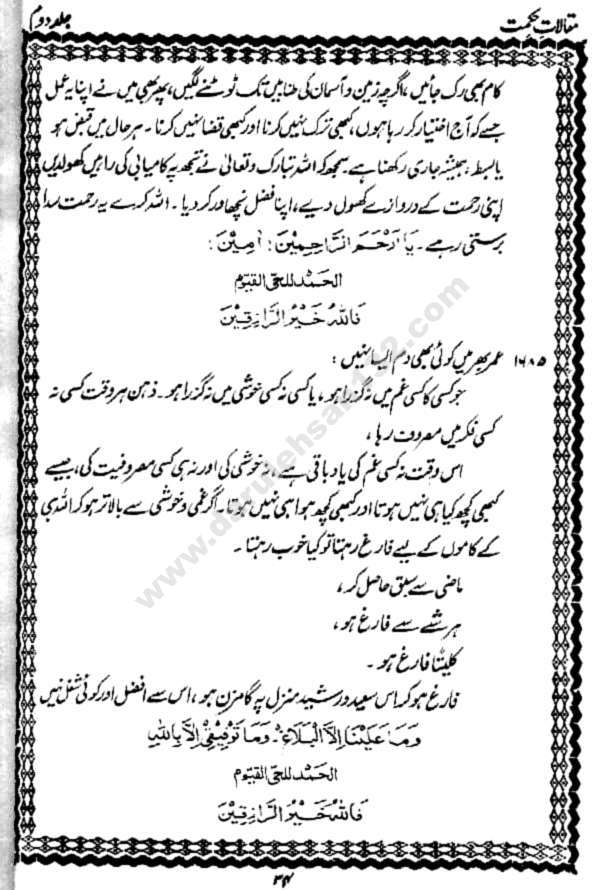 مقالاتِ حکمت
جلد دوم
کام بھی رک جائیں، اگرچہ زمین و آسمان کی طنابیں تک ٹوٹنے لگیں، پھر بھی میں نے اپنا یہ عمل
جسے کہ آج اختیار کر رہا ہوں، کبھی ترک نہیں کرنا اور کبھی قضا نہیں کرنا۔ ہر حال میں قبض ہو
یا بسط، ہمیشہ جاری رکھنا ہے۔ سمجھ کہ اللہ تبارک وتعالیٰ نے تجھ پہ کامیابی کی راہیں کھولدیں
اپنی رحمت کے دروازے کھول دیے، اپنا فضل نچھاور کر دیا۔ اللہ کرے یہ رحمت سدا
برستی رہے۔ یَا اَرْحَمَ الرَّاحِمِیْنَ! اٰمِیْن!
الحمد للحی القیوم
فَاللّٰهُ خَیْرُ الرَّازِقِیْنَ
۱۶۸۵ عمر بھر میں کوئی بھی دم ایسا نہیں:
جو کسی نہ کسی غم میں نہ گزرا ہو، یا کسی نہ کسی خوشی میں نہ گزرا ہو۔ ذہن ہر وقت کسی نہ
کسی فکر میں مصروف رہا،
اس وقت نہ کسی غم کی یاد باقی ہے، نہ خوشی کی اور نہ ہی کسی مصروفیت کی، جیسے
کبھی کچھ کیا ہی نہیں ہوتا اور کبھی کچھ ہوا ہی نہیں ہوتا۔ اگر غمی و خوشی سے بالاتر ہو کر اللہ ہی
کے کاموں کے لیے فارغ رہتا تو کیا خوب رہتا۔
ماضی سے سبق حاصل کر،
ہر شے سے فارغ ہو،
کلیتاً فارغ ہو۔
فارغ ہو کر اس سعید و رشید منزل پہ گامزن ہو، اس سے افضل اور کوئی شغل نہیں
وَمَا عَلَیْنَا اِلَّا الْبَلَاغُ۔ وَمَا تَوْفِیْقِیْ اِلَّا بِاللّٰهِ
الحمد للحی القیوم
فَاللّٰهُ خَیْرُ الرَّازِقِیْنَ
۳۴
www.darulehsan92.com